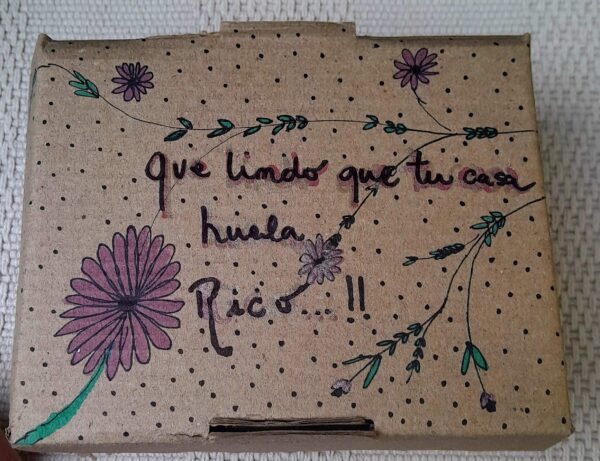 que lindo que tu casa
huela
Rico...!!